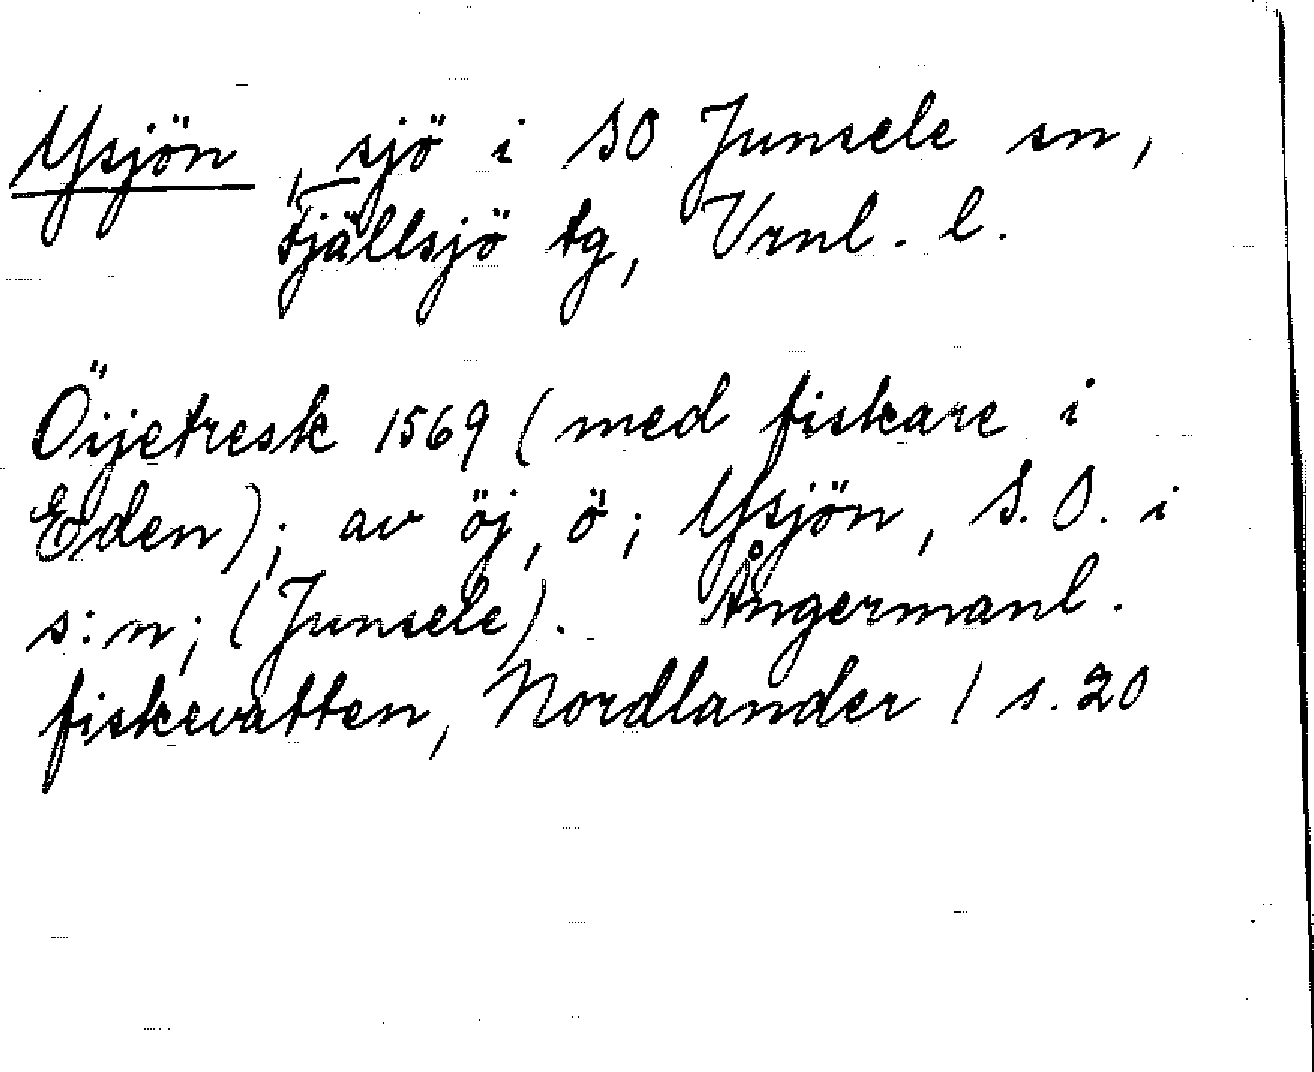 Ysjön, sjö i SO Junsele sn,
Fjällsjö tg, Vrnl. l.
Öijetresk 1569 (med fiskare i
Eden); av öj, ö; Ysjön, S.O. i
s:n; (Junsele). Ångermanl.
fiskevatten, Nordlander / s. 20